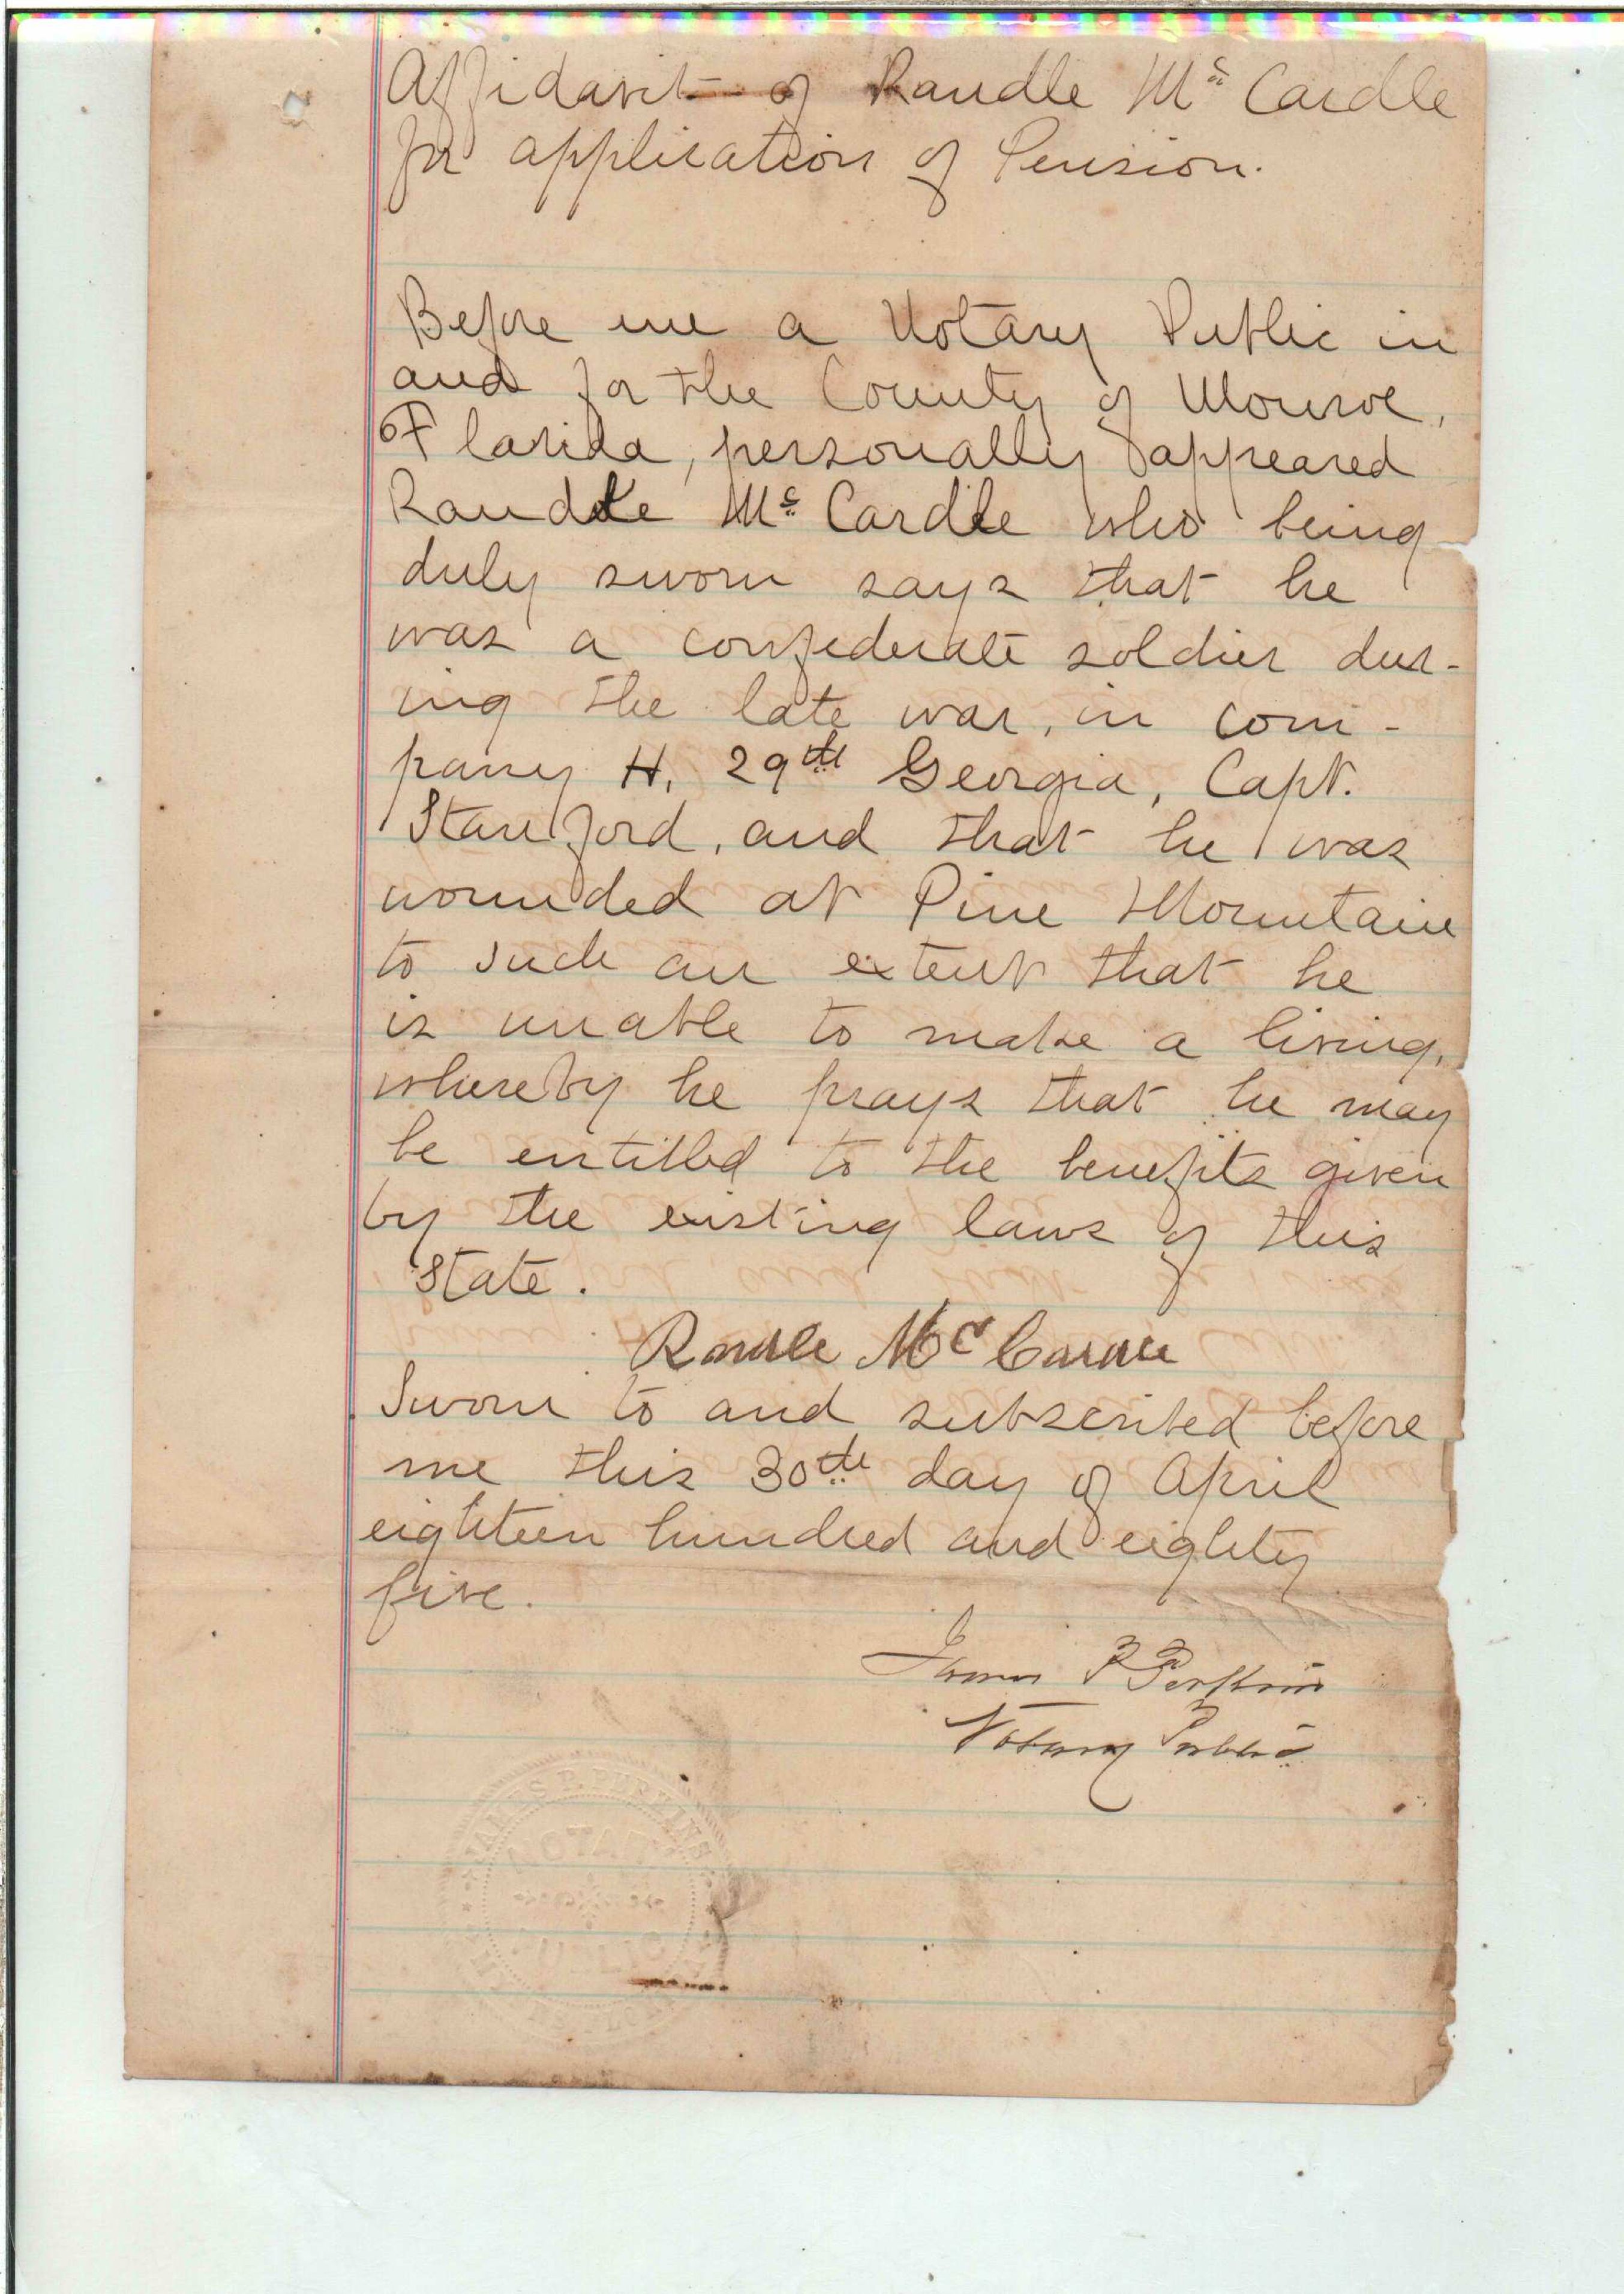 Affidavit of Randle Mc Cardle
for application of Pension.
Before me a Notary Public in
and for the County of Monroe,
of Florida, personally appeared
Randle Mc Cardle who being
duly sworn says that he
was a confederate soldier dur-
ing the late war, in com-
pany H, 29th Georgia, Capt.
Stanford, and that he was
wounded at Pine Mountain
to such an extent that he
is unable to make a living,
whereby he prays that he may
be entitled to the benefits given
by the existing laws of this
State.
Randle Mc Cardle
Sworn to and subscribed before
me this 30th day of April
eighteen hundred and eighty
five.
James P Perkins
Notary Public
JAMES P. PERKINS
NOTARY
PUBLIC